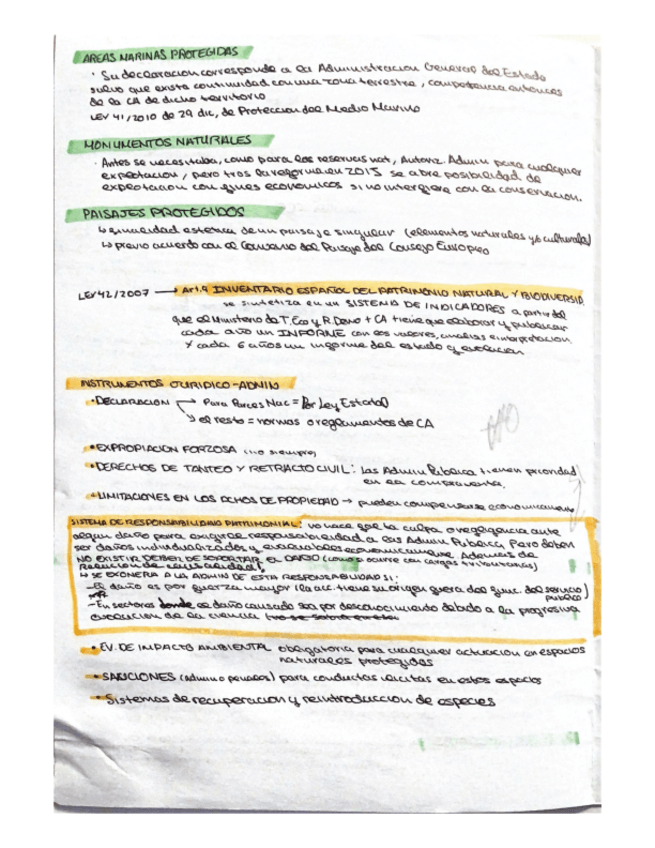 AREAS MARINAS PROTEGIDAS
· Su declaracion corresponde a la Administracion General del Estado
salvo que exista continuidad con una zona terrestre, competencia entonces
de la CA de dicho territorio
LEY 41/2010 de 29 dic, de Proteccion del Medio Marino
MONUMENTOS NATURALES
· Antes se necesitaba, como para las reservas nat, Autoriz. Admin para cualquier
explotacion, pero tras la reforma en 2015 se abre posibilidad de
explotacion con fines economicos si no interfiere con la conservacion.
PAISAJES PROTEGIDOS
↳ singularidad estetica de un paisaje singular (elementos naturales y/o culturales)
↳ previo acuerdo con el Convenio del Paisaje del Consejo Europeo
LEY 42/2007 → Art.9 INVENTARIO ESPAÑOL DEL PATRIMONIO NATURAL Y BIODIVERSID.
se sintetiza en un SISTEMA DE INDICADORES a partir del
que el Ministerio de T. Eco y R. Demo + CA tiene que elaborar y publicar
cada año un INFORME con los valores, analisis e interpretacion
Y cada 6 años un informe del estado y evolucion
INSTRUMENTOS JURIDICO-ADMIN
· DECLARACION → Para Parces Nac = Por Ley Estatal
↘ el resto = normas o reglamentos de CA
· EXPROPIACION FORZOSA (no siempre)
· DERECHOS DE TANTEO Y RETRACTO CIVIL: Las Admin Publica tienen prioridad
en la compraventa.
· LIMITACIONES EN LOS DCHOS DE PROPIEDAD → pueden compensarse economicamente
SISTEMA DE RESPONSABILIDAD PATRIMONIAL: no hace falta culpa o negligencia ante
algun daño para exigirle responsabilidad a las Admin Publica, Pero deben
ser daños individualizados y evaluables economicamente. Ademas de
NO EXISTIR DEBER DE SOPORTAR EL DAÑO (como si ocurre con cargas tributarias)
Relacion de causalidad!
↳ SE EXONERA A LA ADMIN DE ESTA RESPONSABILIDAD SI:
- El daño es por fuerza mayor (la acc. tiene su origen fuera del func. del servicio
publico)
- En sectores donde el daño causado sea por desconocimiento debido a la progresiva
evolucion de la ciencia
· EV. DE IMPACTO AMBIENTAL obligatoria para cualquier actuacion en espacios
naturales protegidos
· SANCIONES (admin o penales) para conductas ilicitas en estos espacios
· Sistemas de recuperacion y reintroduccion de especies